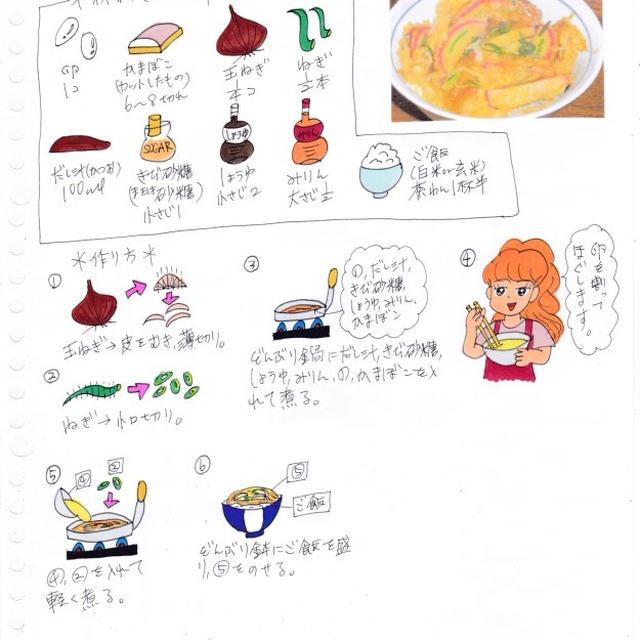 卵
1コ
かまぼこ
(カットしたもの)
6〜8切れ
玉ねぎ
1/4コ
ねぎ
1/2本
だし汁(かつお)
100ml
SUGAR
きび砂糖
(または砂糖)
小さじ1
しょうゆ
しょうゆ
小さじ2
みりん
みりん
大さじ1/2
ご飯
(白米or玄米)
茶わん1杯半
*作り方*
①
玉ねぎ→皮をむき,薄切り。
②
ねぎ→小口切り。
③
①,だし汁,
きび砂糖
しょうゆ,みりん,
かまぼこ
どんぶり鍋にだし汁,きび砂糖,
しょうゆ,みりん,①,かまぼこを入
れて煮る。
④
卵を割って
ほぐします。
⑤
④
②
④,②を入れて
軽く煮る。
⑥
⑤
ご飯
どんぶり鉢にご飯を盛
り,⑤をのせる。